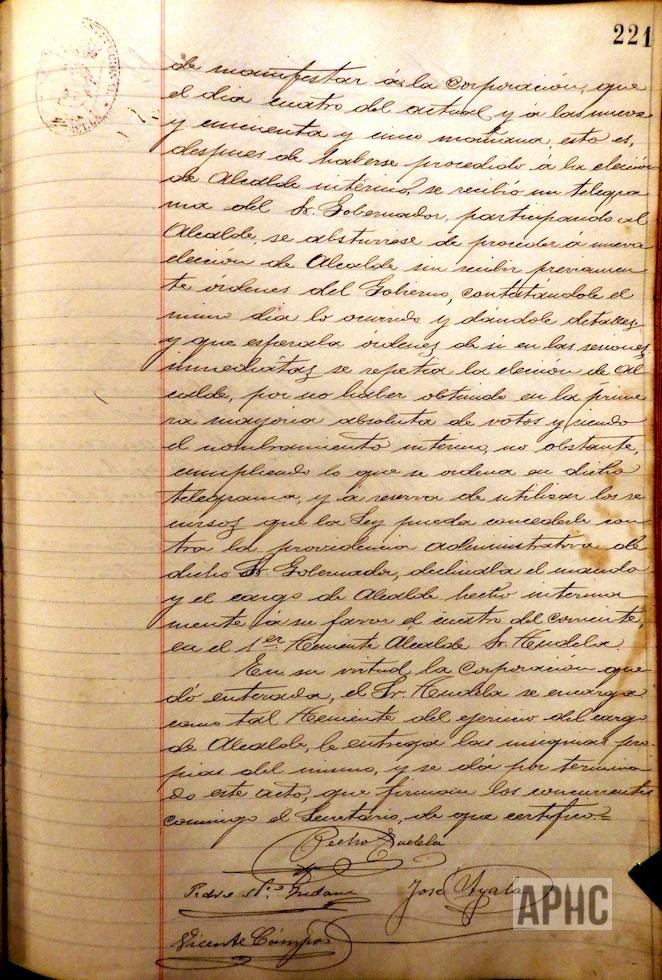 221
de manifestar á la Corporación, que
el dia cuatro del actual y á las nueve
y cincuenta y cinco mañana, esto es,
despues de haberse procedido á la elección
de Alcalde interino, se recibió un telegra
ma del Sr. Gobernador, participando al
Alcalde, se abstuviese de proceder á nueva
elección de Alcalde sin recibir previamen
te órdenes del Gobierno, contatándole el
mismo dia lo ocurrido y dándole detalles,
y que esperaba órdenes de si en las sesiones
inmediátas se repetia la elección de Al
calde, por no haber obtenido en la prime
ra mayoria absoluta de votos y siendo
el nombramiento interino, no obstante,
cumpliendo lo que se ordena en dicho
telegrama, y á reserva de utilizar los re
cursos que la Ley pueda concederle con
tra la providencia administrativa de
dicho Sr. Gobernador, declinaba el mando
y el cargo de Alcalde hecho interina
mente á su favor el cuatro del corriente,
en el 1er Teniente Alcalde Sr. Tudela.
En su virtud, la Corporación que
dó enterada, el Sr. Tudela se encarga
como tal Teniente del ejercicio del cargo
de Alcalde, le entrega las insignias pro
pias del mismo, y se dá por termina
do este acto, que firman los concurrentes
conmigo el Secretario, de que certifico.=
Pedro Tudela
Pedro
José Ayala
Vicente Cámpos
APHC